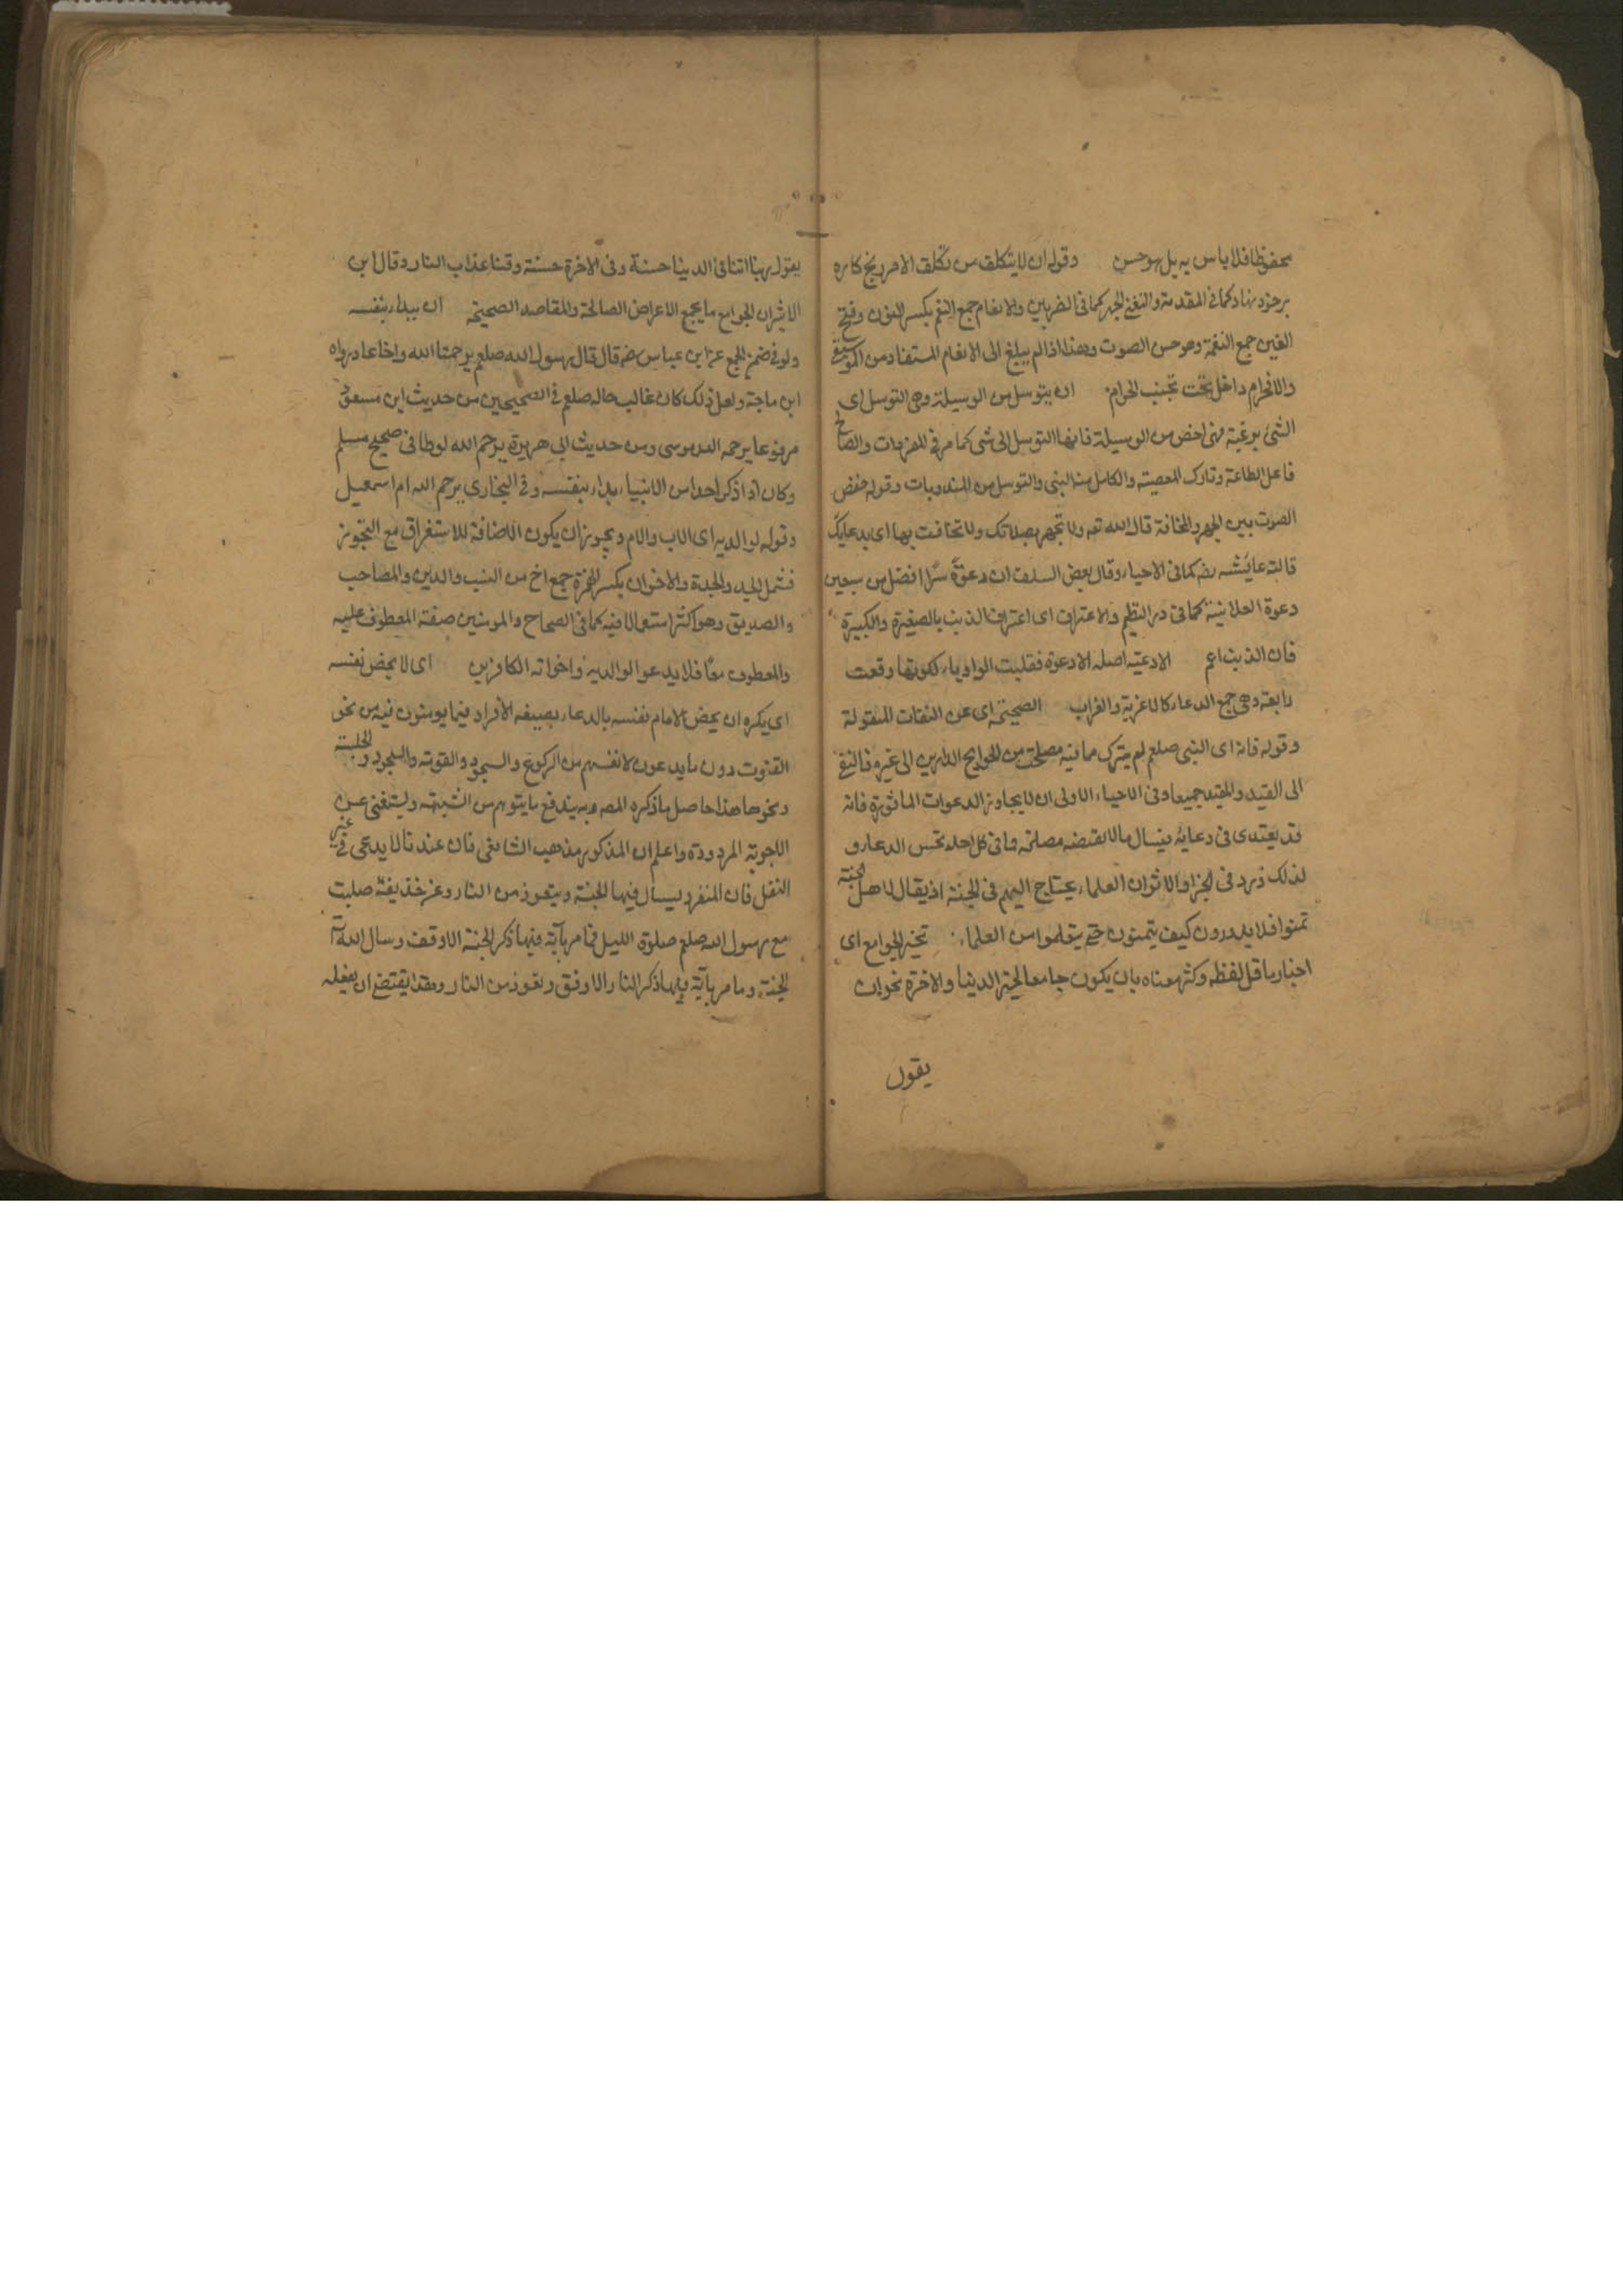 محفوظا فلا باس به بل هو حسن وقوله ان لا يتكلف من تكلف الامر رنج كاره
بر خود نهاد كما فى المقدمة والتغنى الجهر كما فى المضريين والانغام جمع النغم بكسر النون وفتح
الغين جمع النغمة وهو حسن الصوت وهذا اذا لم يبلغ الى الانغام المستفاد من الموسيقى
والا فحرام داخل تحت تجنب الحرام ان يتوسل من الوسيلة وهى التوسل اى
الشئ برغبة فهى اخص من الوسيلة فانها التوسل الى شئ كما مر فى المفردات والصالح
فاعل الطاعة وتارك المعصية والكامل منه النبى والتوسل من المندوبات وقوله خفض
الصوت بين الجهر والمخافة قال الله تعه ولا تجهر بصلاتك ولا تخافت بها اى بدعايك
قالته عايشه رضه كما فى الاحياء وقال بعض السلف ان دعوة سرا افضل من سبعين
دعوة العلانية كما فى در النظيم والاعتراف اى اعتراف الذنب بالصغيرة والكبيرة
فان الذنب اعم الادعية اصله الادعوة فقلبت الواو ياء لكونها وقعت
رابعة وهى جمع الدعاء كالاغربة والغراب الصحيحة اى عن الثقات المنقولة
وقوله فانه اى النبى صلعم لم يترك مما فيه مصلحة من الحوايج الدارين الى غيره فالنفى
الى القيد والمقيد جميعا وفى الاحياء الاولى ان لا يجاوز الدعوات الماثورة فانه
قد يعتدى فى دعايه فيسال ما لا يقتضه مصلحة فما فى كل احد تحسن الدعاء و
لذلك ورد فى الخبر او الاثر ان العلماء يحتاج اليهم فى الجنة اذ يقال لاهل الجنة
تمنوا فلا يدرون كيف يتمنون حتى يتعلموا من العلماء تخير الجوامع اى
اختار ما قل لفظه وكثر معناه بان يكون جامعا لخير الدنيا والاخرة نحو ان
يقول
يقول ربنا اتنا فى الدنيا حسنة وفى الاخرة حسنة وقنا عذاب النار وقال ابن
الاثير ان الجوامع ما يجمع الاغراض الصالحة والمقاصد الصحيحة ان يبدا بنفسه
ولو فى ضمن الجمع عن ابن عباس رضه قال قال رسول الله صلعم يرحمنا الله واخا عاد رواه
ابن ماجة ولعل ذلك كان غالب حاله صلعم فى الصحيحين من حديث ابن مسعود
مرفوعا يرحمه الله موسى ومن حديث ابى هريرة يرحم الله لوطا فى صحيح مسلم
وكان اذا ذكر احدا من الانبياء بدا بنفسه وفى البخارى يرحم الله ام اسمعيل
وقوله لوالديه اى الاب والام ويجوز ان يكون الاضافة للاستغراق مع التجوز
فشمل الجد والجدة والاخوان بكسر الهمزة جمع اخ من النسب والدين والمصاحب
والصديق وهو اكثر استعمالا فيه كما فى الصحاح والمومنين صفة المعطوف عليه
والمعطوف معا فلا يدعو الوالديه واخواته الكافرين اى لا يخص نفسه
اى يكره ان يخص الامام نفسه بالدعاء بصيغه الافراد فيما يومنون فيه من نحو
القنوت دون ما يدعون لانفسهم من الركوع والسجود والقومة والسجود والجلسة
ونحوها هذا حاصل ما ذكره المصه وبه يندفع ما يتوهم من الشبهة وليستغنى عن
الاجوبة المردودة واعلم ان المذكور مذهب الشافعى فان عندنا لا يدعى فى غير
النفل فان المنفرد يسال فيها الجنة ويتعوذ من النار وعن حذيفة صليت
مع رسول الله صلعم صلوة الليل فما مر بآية فيها ذكر الجنة الا وقف وسال الله تعا
الجنة وما مر بآية فيها ذكر النار الا وقف وتعوذ من النار وهذا يقتضى ان يفعله